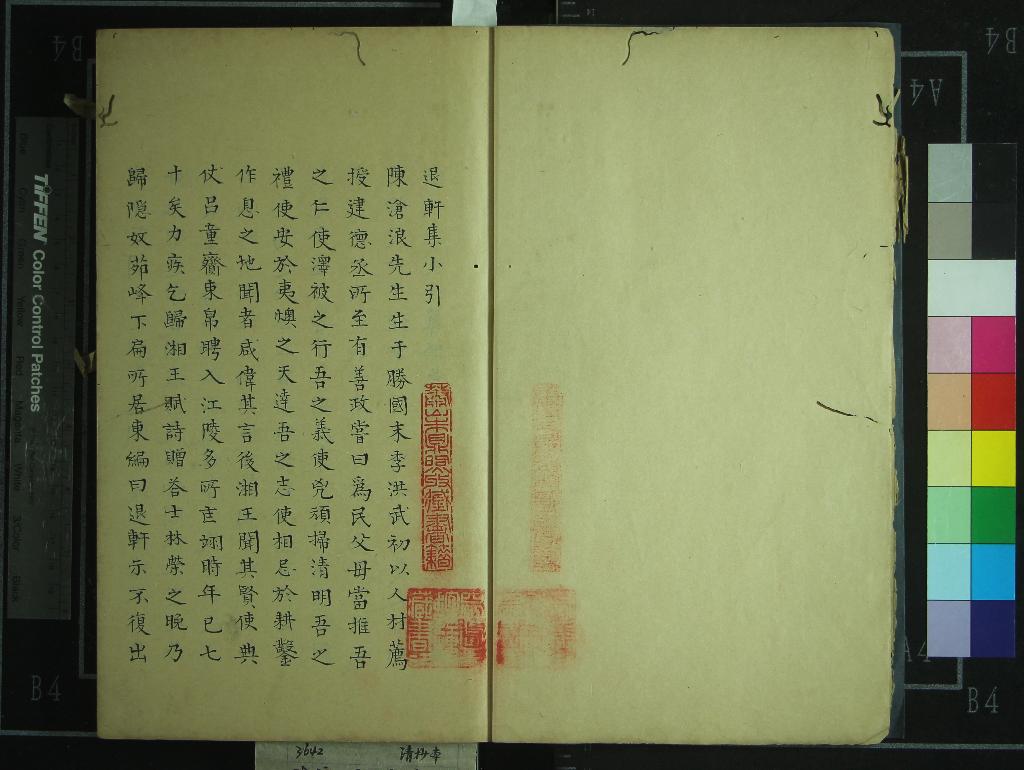 退軒集小引
陳滄浪先生生于勝國末季洪武初以人材薦
授建德丞所至有善政嘗曰爲民父母當推吾
之仁使澤被之行吾之義使兇頑掃清明吾之
禮使安於夷燠之天達吾之志使相忘於耕鑿
作息之地聞者咸偉其言後湘王聞其賢使典
仗呂童齎束帛聘入江陵多所匡翊時年已七
十矣力疾乞歸湘王賦詩贈答士林榮之晚乃
歸隱奴茆峰下扁所居東編曰退軒示不復出
3642
清抄本
TIFFEN Color Control Patches
B4
B4
A4
B4
A4
B4